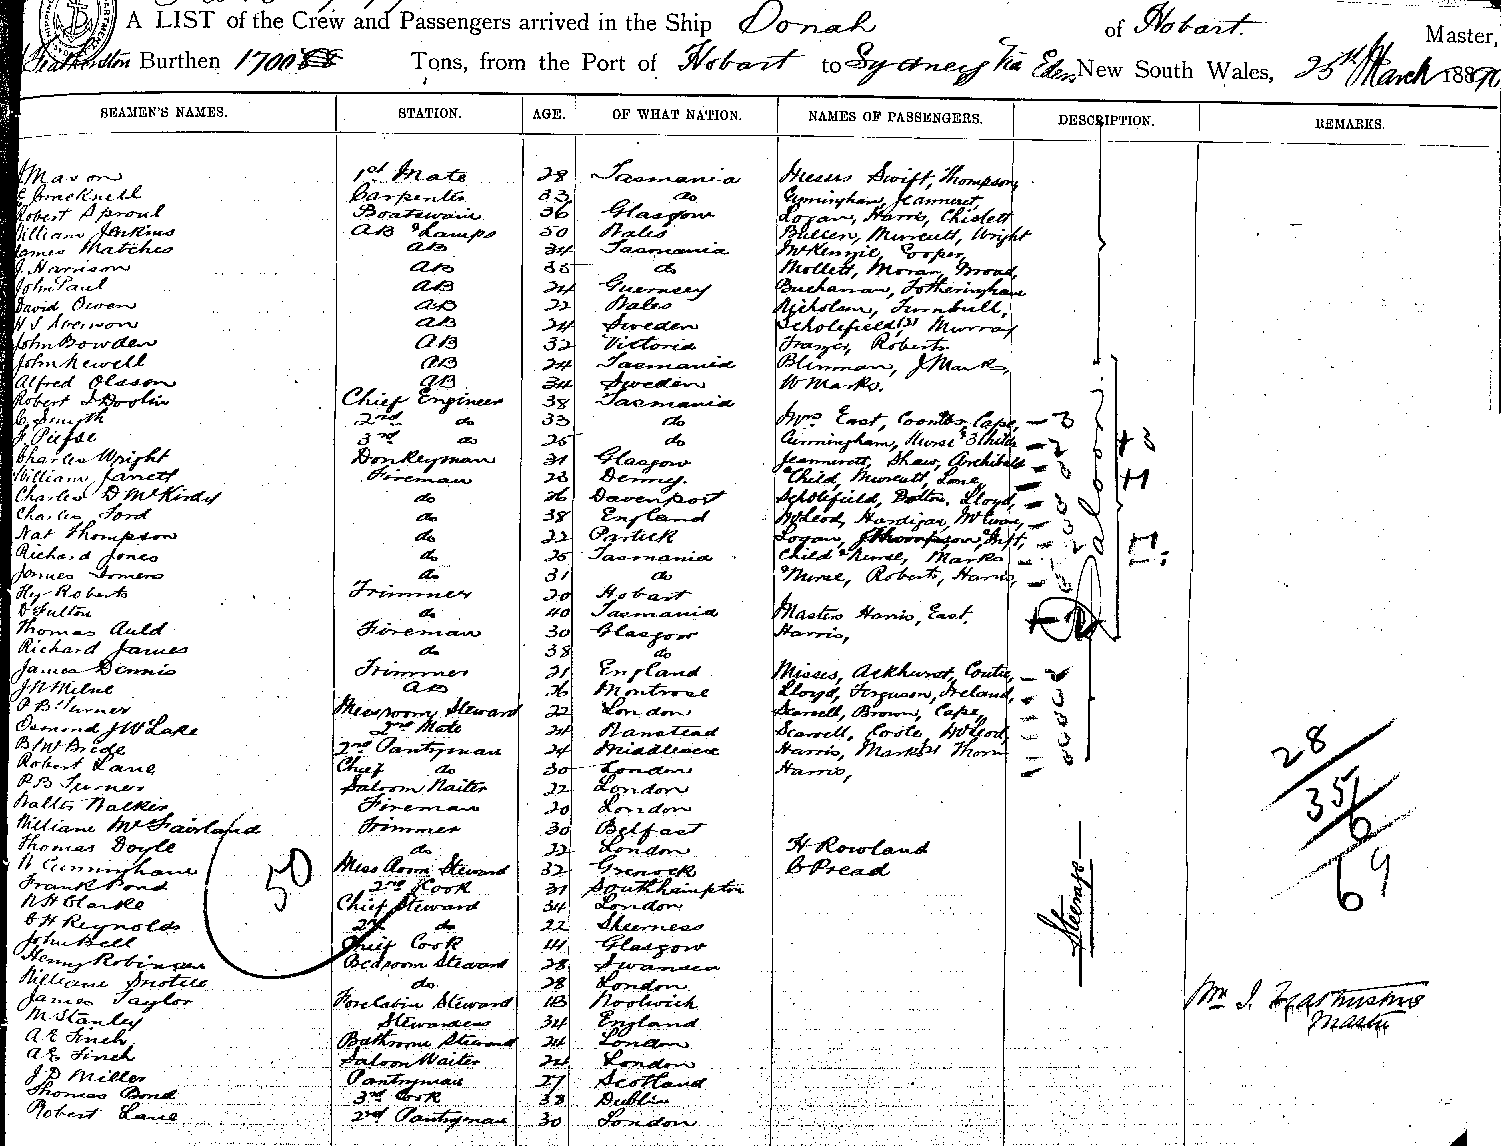 A LIST of the Crew and Passengers arrived in the Ship Oonah of Hobart. Master,
Burthen 1700 Tons, from the Port of Hobart to Sydney Via Eden New South Wales, 25th March 1889
SEAMEN'S NAMES. STATION. AGE. OF WHAT NATION. NAMES OF PASSENGERS. DESCRIPTION. REMARKS.
1st Mate 28 Tasmania Messrs Swift, Thompson,
Carpenter 33 do Cunningham, Jeanneret,
Robert Sproul Boatswain 36 Glasgow Logan, Harris, Chislett
William Jenkins AB & Lamps 50 Wales Bullen, Murcutt, Wright
James Matches AB 34 Tasmania McKenzie, Cooper,
J. Harrison AB 35 do Mollett, Moran, Broad,
John Paul AB 24 Guernsey Buchanan, Fotheringham
David Owen AB 22 Wales Nicholson, Turnbull,
AB 24 Sweden Scholefield, Murray
John Bowden AB 32 Victoria Frazer, Roberts
John Newell AB 24 Tasmania Blinman, J Mark,
Alfred Olsson AB 34 Sweden W Marks.
Robert Chief Engineer 38 Tasmania
C. Smyth 2nd do 33 do Mrs East, Coombs, Cape,
3rd do 25 do Cunningham, Nurse & 3 Childn
Charles Wright Donkeyman 31 Glasgow Jeanneret, Shaw, Archibald
William Janett Fireman 28 Denny & Child, Murcutt, Lane,
Charles D McKirdy do 26 Davenport Scholefield, Bolton, Lloyd,
Charles Ford do 38 England McLeod, Hardigan, McEwan,
Nat Thompson do 22 Partick Logan, Thompson, Swift,
Richard Jones do 25 Tasmania Child & Nurse, Marks
James Somers do 31 do & Nurse, Roberts, Harris,
Hy Roberts Trimmer 20 Hobart
D Fulton do 40 Tasmania Masters Harris, East,
Thomas Auld Fireman 30 Glasgow Harris,
Richard James do 38 do
James Dennis Trimmer 21 England Misses, Ackhurst, Coutie,
J N Milne AB 26 Montrose Lloyd, Ferguson, Ireland,
P B Turner Messroom Steward 22 London Scarvell, Brown, Cape,
Osmond J W Lake 2nd Mate 24 Wanstead Scarvell, Coote, McLeod,
B W Bride 2nd Pantryman 24 Middlesex Harris, Marks Thorn
Robert Lane Chief do 30 London Harris,
P B Turner Saloon Waiter 22 London
Walter Walker Fireman 20 London
William McFairland Trimmer 30 Belfast
Thomas Doyle do 22 London H Rowland
W Cunninghame Mess Room Steward 32 Greenock C Pread
Frank Pond 2nd Cook 31 Southampton
W H Clarke Chief Steward 34 London
C H Reynolds 2nd do 22 Sheerness
John Bell Chief Cook 44 Glasgow
Henry Robinson Bedroom Steward 28 Swansea
William do 28 London
James Taylor Forecabin Steward 18 Woolwich
M Stanley Stewardess 34 England
A E Finch Bathroom Steward 24 London
A E Finch Saloon Waiter 24 London
J D Miller Pantryman 27 Scotland
Thomas Bond 3rd Cook 38 Dublin
Robert Lane 2nd Pantryman 30 London
Saloon
Steerage
50
28
35
6
69
Master